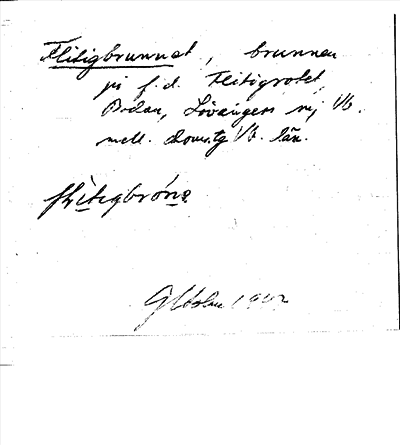 Flitigbrunnet, brunnen
på f.d. Flitigrotet,
Bodan, Lövångers sn,
mell. domsg Vb. län.
flitigbrón
1942